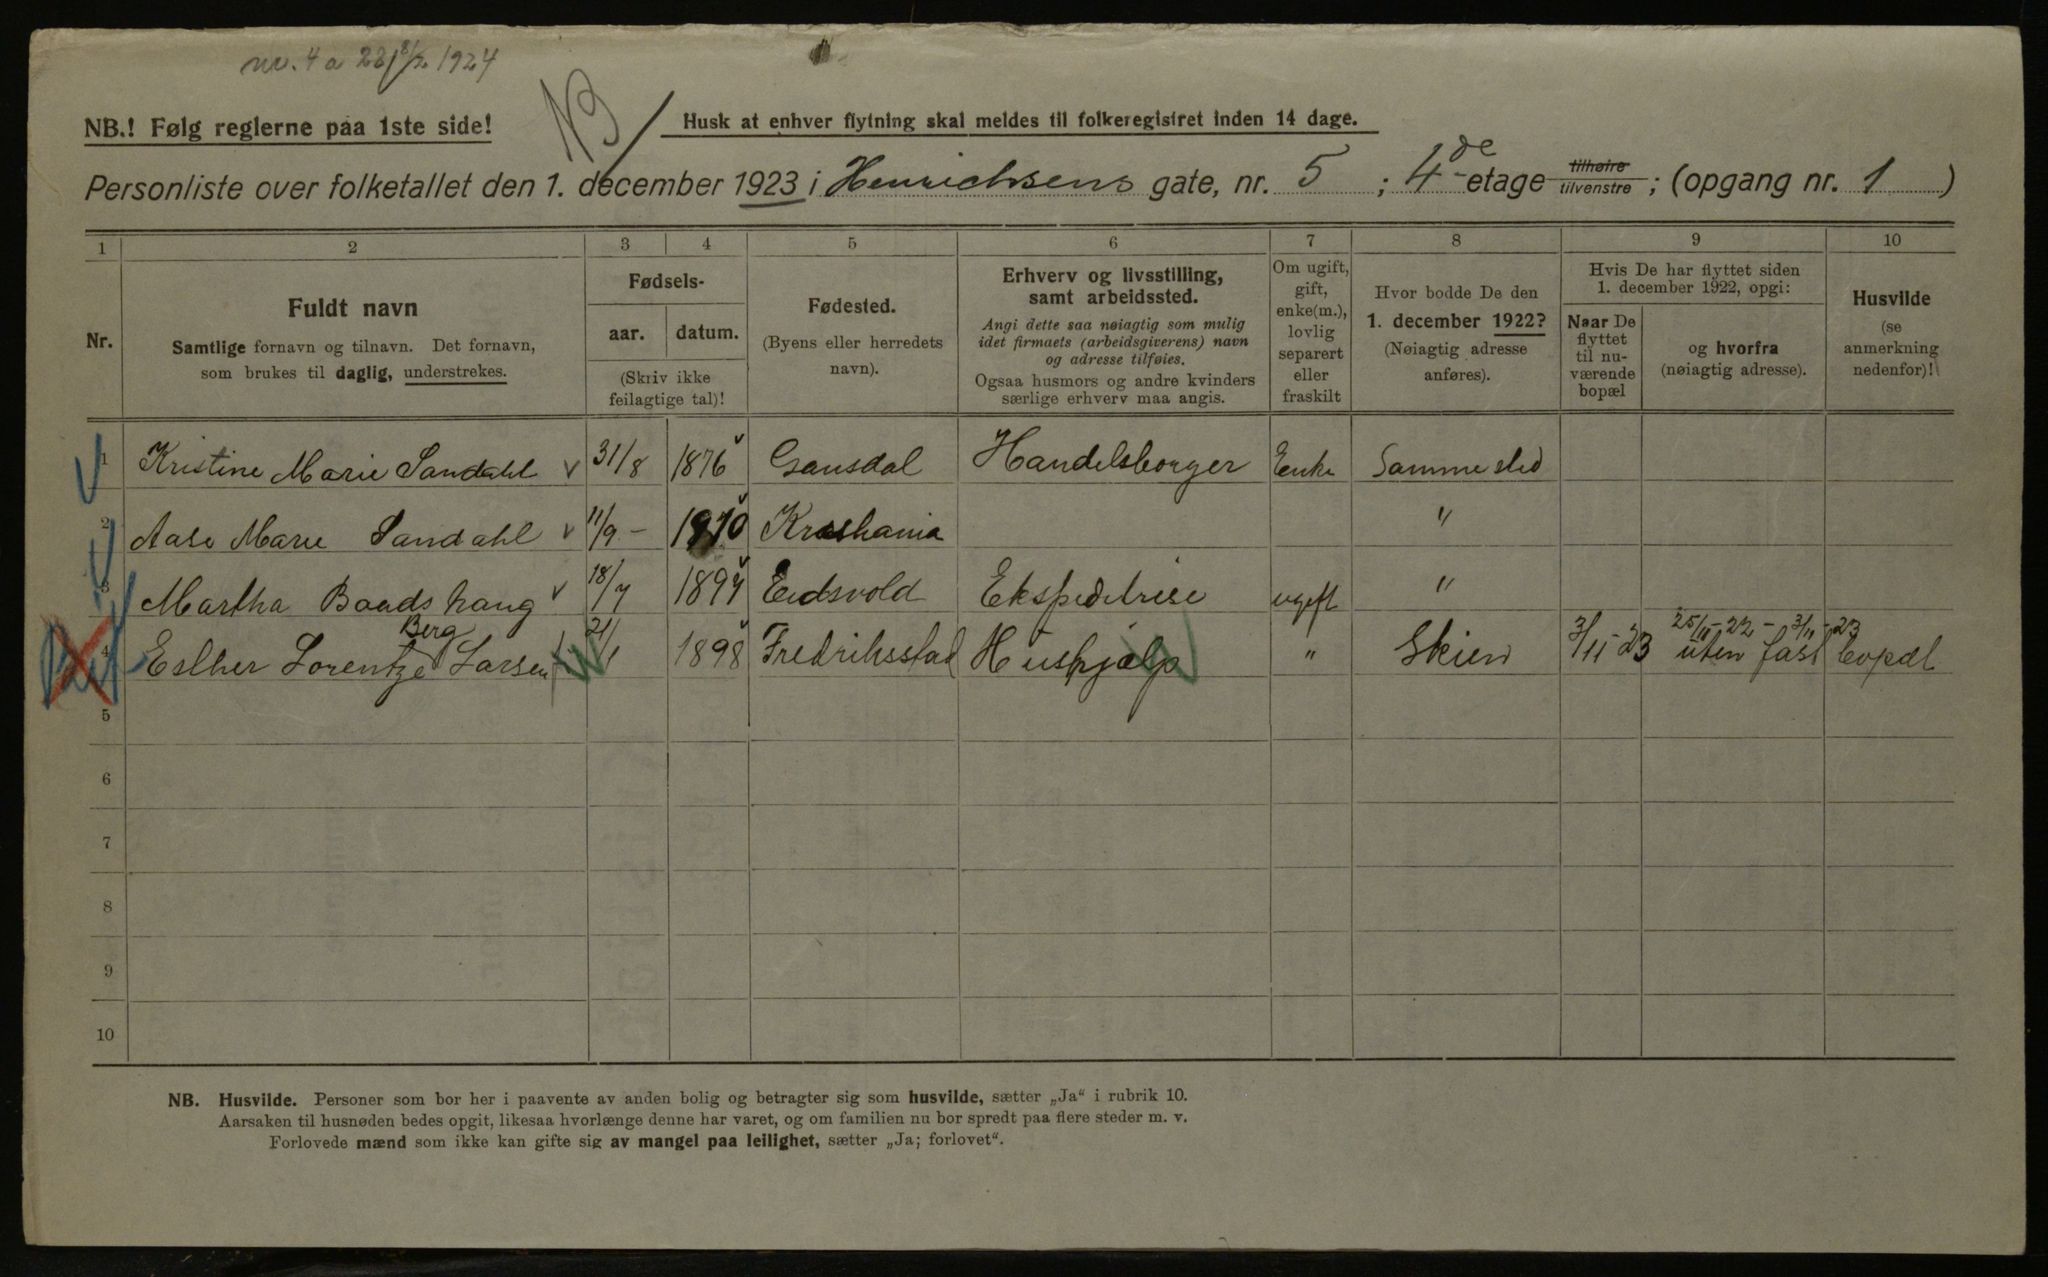 nv. 4 a 22 8/2 1924
NB
NB.! Følg reglerne paa 1ste side!
Husk at enhver flytning skal meldes til folkeregistret inden 14 dage.
Personliste over folketallet den 1. december 1923 i Henrichsens gate, nr. 5 ; 4de etage tilhøire tilvenstre ; (opgang nr. 1 )
1 2 3 4 5 6 7 8 9 10
Nr.
Fuldt navn
Samtlige fornavn og tilnavn. Det fornavn,
som brukes til daglig, understrekes.
Fødsels-
aar. datum.
(Skriv ikke
feilagtige tal)!
Fødested.
(Byens eller herredets
navn).
Erhverv og livsstilling,
samt arbeidssted.
Angi dette saa nøiagtig som mulig
idet firmaets (arbeidsgiverens) navn
og adresse tilføies.
Ogsaa husmors og andre kvinders
særlige erhverv maa angis.
Om ugift,
gift,
enke(m.),
lovlig
separert
eller
fraskilt
Hvor bodde De den
1. december 1922?
(Nøiagtig adresse
anføres).
Hvis De har flyttet siden
1. december 1922, opgi:
Naar De
flyttet
til nu-
værende
bopæl
og hvorfra
(nøiagtig adresse).
Husvilde
(se
anmerkning
nedenfor)!
1 Kristine Marie Sandahl 31/8 1876 Gansdal Handelsborger Enke Samme sted
2 Aase Marie Sandahl 11/9 - 1910 Kristiania "
3 Martha Baadshaug 18/7 1897 Eidsvold Ekspeditrise ugift "
Berg 25/11-22 - 3/11-23
4 Esther Lorentze Larsen 21/1 1898 Fredriksstad Hushjælp " Skien 3/11-23 uten fast bopæl
5
6
7
8
9
10
NB. Husvilde. Personer som bor her i paavente av anden bolig og betragter sig som husvilde, sætter „Ja“ i rubrik 10.
Aarsaken til husnøden bedes opgit, likesaa hvorlænge denne har varet, og om familien nu bor spredt paa flere steder m. v.
Forlovede mænd som ikke kan gifte sig av mangel paa leilighet, sætter „Ja; forlovet“.